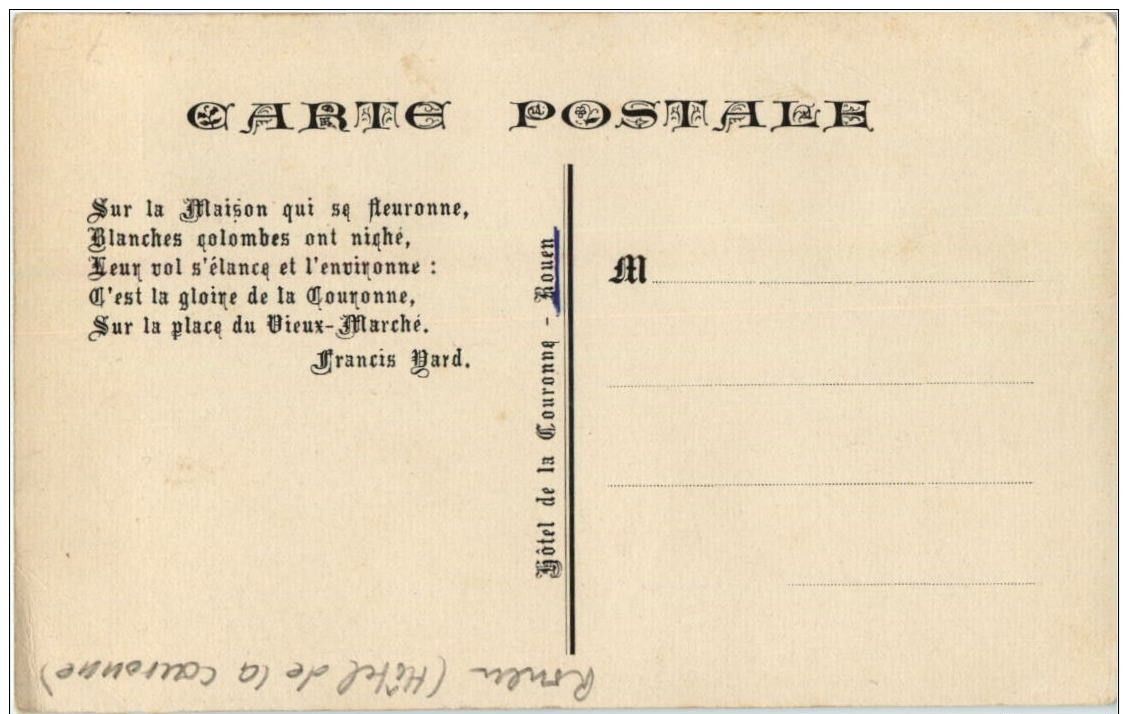 CARTE POSTALE
Sur la Maison qui se fleuronne,
Blanches colombes ont niché,
Leur vol s'élance et l'environne :
C'est la gloire de la Couronne,
Sur la place du Vieux-Marché.
Francis Yard.
Hôtel de la Couronne - Rouen
M
Rouen (Hôtel de la couronne)